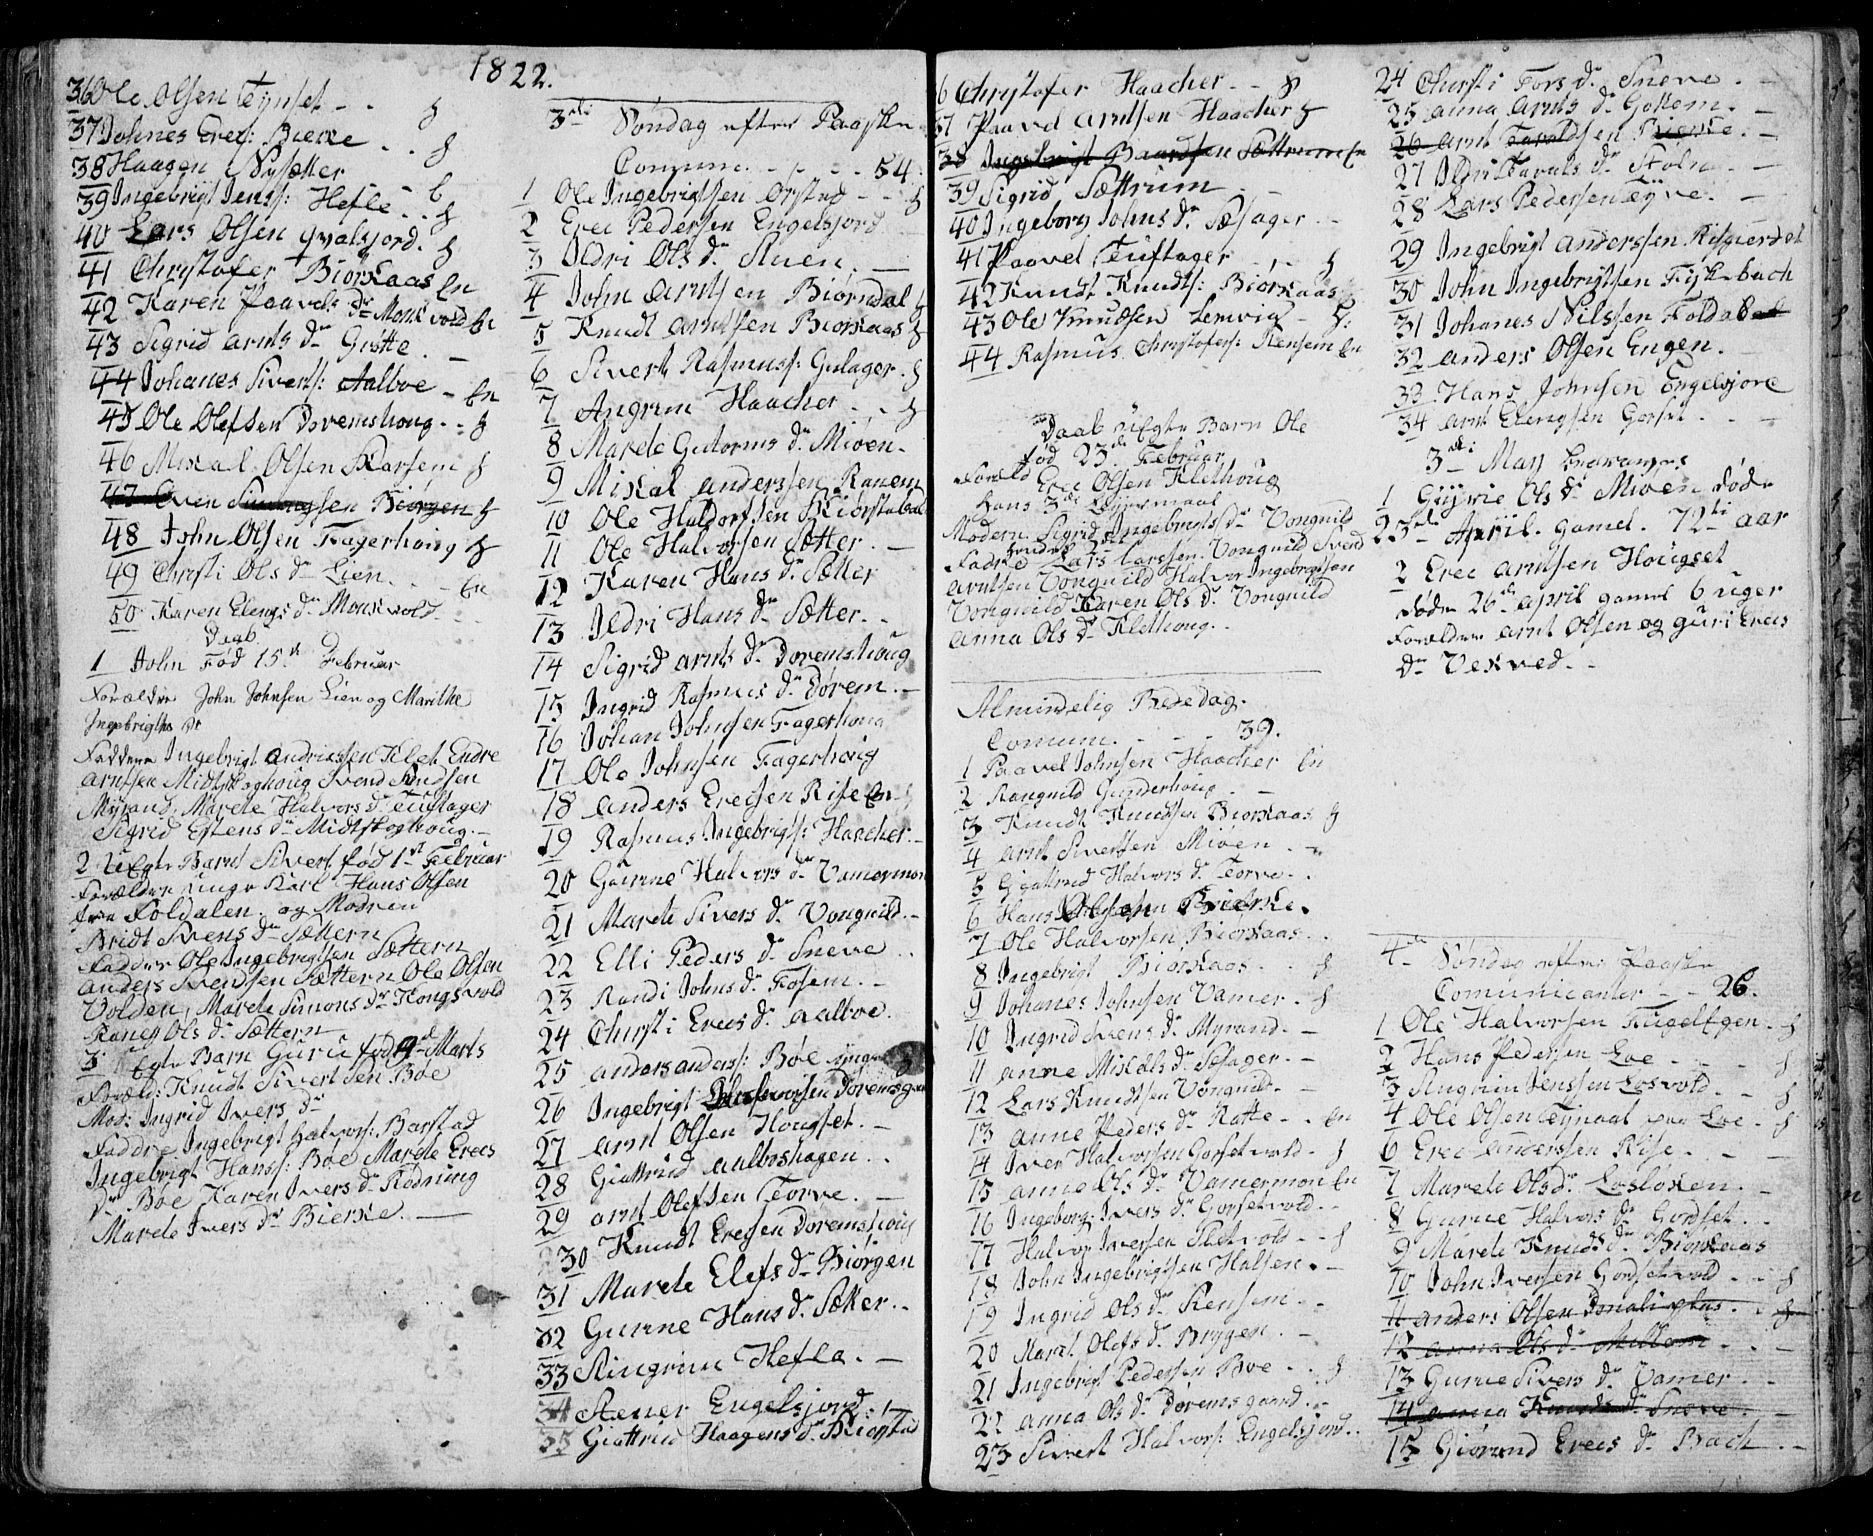 1822.
36 Ole Olsen Tynset - - h
37 Johnes Erec: Bierke - - h
38 Haagen Nysætter
39 Ingebrigt Jenss: Hefle - - h
40 Lars Olsen qvalsjord. h
41 Chrystofer Biørkaas En
42 Karen Paavels Dr Monsvold En
43 Sigrid Arnts Dr Grøtte. -
44 Johanes Siverts: Aalboe - En
45 Ole Olefsen Doremshoug - - h
46 Mikal Olsen Karsem h
47 Even Biørgen h
48 John Olsen Fagerhoug h
49 Chirsti Ols Dr Lien. - En
50 Karen Elengs Dr Monsvold. - -
Daab
1 John Fød 15de Februar
Forældre John Johnsen Lien og Marithe
Ingebrigts Dr
Faddere Ingebrigt Andriassen Klet Endre
Arntsen Midtskoghoug Svend Knudsen
Myrand, Marete Halvors Dr Tuftager
Sigrid Estens Dr Midtskoghoug. -
2 Uægte Barn Sivert fød 1st Februar
Forældre unge Karl Hans Olsen
fra Foldalen og Modren
Bridt Svens Dr Sættern
Fadder Ole Ingebrigtsen Sættern
Anders Svendsen Sættern Ole Olsen
Volden, Marete Simons Dr Kongsvold
Ranei Ols Dr Sættern
3 Uegte Barn Guru fød Marts
Foræld: Knudt Sivertsen Boe
Mod: Ingrid Ivers Dr
Faddre Ingebrigt Halvors: Barstad
Ingebrigt Hanss: Boe Marete Erecs
Dr Boe Karen Ivers Dr Rødning
Marete Ivers Dr Bierke. -
3die Søndag efter Paaske
Comum. - - - 54.
1 Ole Ingebrigtsen Ørstad - - h
2 Erec Pedersen Engelsjord
3 Ildri Ols Dr Stuen. -
4 John Arntsen Biørndal h
5 Knudt Arntsen Biørkaas h
6 Sivert Rasmuss: Gulager. h
7 Angrim Haacher - - h
8 Marete Gutorms Dr Mioen.
9 Mikal Anderssen Ranem
10 Ole Haldorsen Skiørstabak
11 Ole Halvorsen Sætter. -
12 Karen Hans Dr Sætter
13 Ildri Hans Dr Sætter. -
14 Sigrid Arnts Dr Doremshoug
15 Ingrid Rasmus Dr Dørem. -
16 Johan Johnsen Fagerhoug
17 Ole Johnsen Fagerhoug
18 Anders Erecsen Rise En
19 Rasmus Ingebrigts: Haacher. -
20 Guurue Halvors Dr Vamermon
21 Marete Sivers Dr Vongnild. -
22 Elli Peders Dr Sneve
23 Randi Johns Dr Fosem. -
24 Chirsti Erecs Dr Aalboe.
25 Anders Anders: Boe unge
26 Ingebrigt Doremsgaard
27 Arnt Olsen Hougset. -
28 Giattrud Aalboshagen. .
29 Arnt Olefsen Torve. -
30 Knudt Erecsen Doremshoug
31 Marete Elefs Dr Biørgen
32 Gurue Hans Dr Sætter. -
33 Stingrim Hefle. -
34 Stener Engelsjord: h
35 Giattrud Haagens Dr Biørstad
36 Chrystofer Haacher - - h
37 Paavel Arntsen Haacher h
38 Ingebrigt Baardsen Sættrum En
39 Sigrid Sættrum - -
40 Ingeborg Johns Dr Sæsager. -
41 Paavel Tuftager - - h
42 Knudt Knudts: Biørkaas
43 Ole Knudsen Lenvig - h:
44 Rasmus Chrystofers: Stensem En
Daab Uegte Barn Ole
fød 23de Februar
Foræld Erec Olsen Klethoug
hans 3de Leyermaal
Modern Sigrid Ingebrigts Dr Vongnild
hendes 2det
Fadre Lars Larssen Vongnild Svend
Arntsen Vongnild Halvor Ingebrigtsen
Vongnild Karen Ols Dr Vongnild
Anna Ols Dr Klethoug. -
Almindelig Bededag.
Comum. - - - 39.
1 Paavel Johnsen Haacher En
2 Rangnild Gunderhoug - -
3 Knudt Knudtsen Biørkaas h
4 Arnt Sivertsen Mioen. -
5 Giattrud Halvors Dr Torve. .
6 Hans Olsen Bierke.
7 Ole Halvorsen Biørkaas. .
8 Ingebrigt Biørkaas. . h
9 Johanes Johnsen Vamer. h
10 Ingrid Svens Dr Myrand. -
11 Anne Mikals Dr Sæsager. -
12 Lars Knudtsen Vongnild. -
13 Anne Peders Dr Ratte - - En
14 Iver Halvorsen Gorsetvold. h
15 Anne Ols Dr Vamermon En
16 Ingeborg Ivers Dr Gorsetvold. -
17 Halvor Iversen Sletvold - - h
18 John Ingebrigtsen Halsen. -
19 Ingrid Ols Dr Stensem. .
20 Maret Olefs Dr Bryggen. -
21 Ingebrigt Pedersen Boe. . h
22 Anna Ols Dr Doremsgaard. -
23 Sivert Halvors: Engelsjord. .
24 Chirsti Fors Dr Sneve. -
25 Anna Arnts Dr Gottem. -
26 Arnt Toraldsen Bierke. -
27 Ildri Taralds Dr Stoln. -
28 Lars Pedersen Tøyve. -
29 Ingebrigt Anderssen Risgierdet
30 John Ingebrigtsen Fyskebach
31 Johanes Nilssen Foldal
32 Anders Olsen Engen.
33 Hans Johnsen Engelsjord
34 Arnt Elengsen Gorset.
3die May Begravne
1 Guurie Ols Dr Mioen Døde
23de April. gamel. 72ti aar
2 Erec Arntsen Hougset
Døde 26de April gamel 6 uger
Forældre Arnt Olsen og Guri Erecs
Dr Vekved. -
4de Søndag efter Paaske
Comunicanter - - 26.
1 Ole Halvorsen Fugelegen. h
2 Hans Pedersen Loe - - - h
3 Angrim Jenssen Losvold. - h
4 Ole Olsen Tynaal paa Loe - h
6 Erec Anderssen Rise. -
7 Marete Ols Dr Losløkken. -
8 Gurue Halvors Dr Gordset. .
9 Marete Knuds Dr Biørkaas
10 John Iversen Gordsetvold - - h
11 Anders Olsen . h
12 Anna Ols Dr . -
13 Gurue Sivers Dr Vamer. -
14 Anna Knuds Dr Sneve. -
15 Giørand Erecs Dr Bach. -